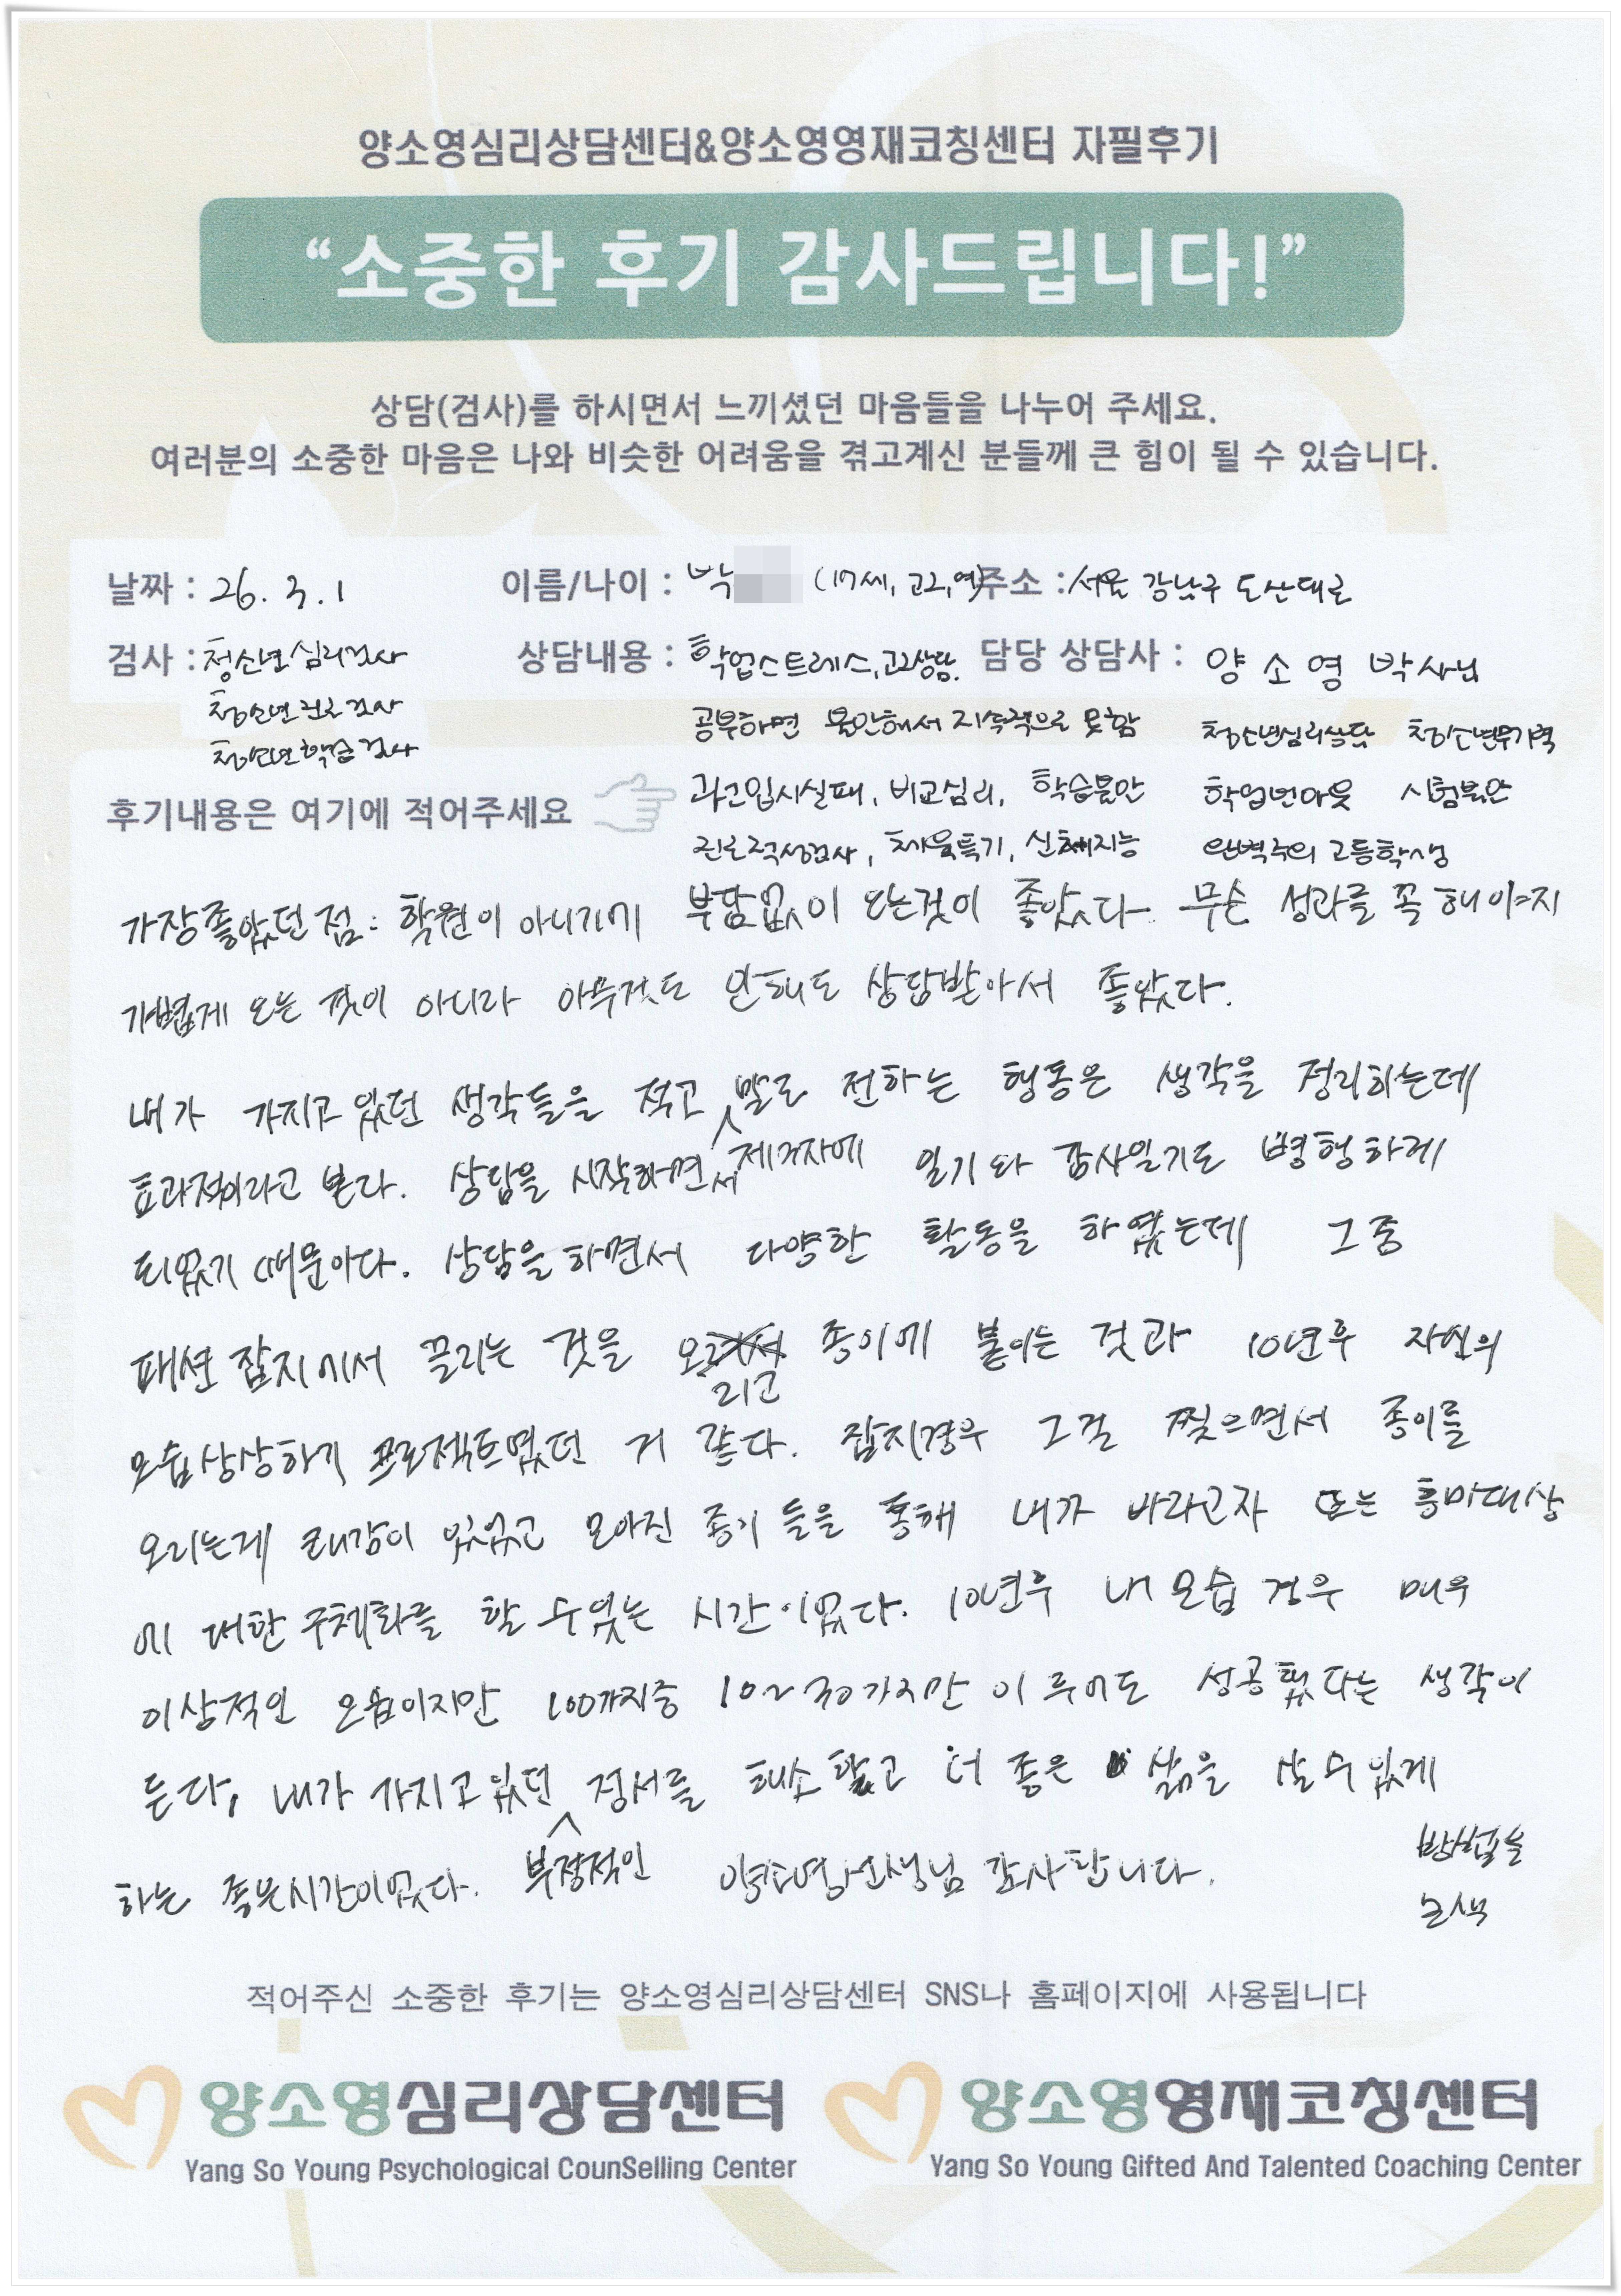 양소영심리상담센터&양소영영재코칭센터 자필후기
“소중한 후기 감사드립니다!”
상담(검사)를 하시면서 느끼셨던 마음들을 나누어 주세요.
여러분의 소중한 마음은 나와 비슷한 어려움을 겪고계신 분들께 큰 힘이 될 수 있습니다.
날짜 : 26. 3. 1 이름/나이 : 박 (17세, 고2, 여) 주소 : 서울 강남구 도산대로
검사 : 청소년심리검사 상담내용 : 학업스트레스, 고2상담. 담당 상담사 : 양 소 영 박사님
청소년진로검사 공부하면 불안해서 지속적으로 못함 청소년심리상담 청소년무기력
청소년학습검사
후기내용은 여기에 적어주세요 과고입시실패, 비교심리, 학습불안 학업번아웃 시험불안
진로적성검사, 체육특기, 신체지능 완벽주의 고등학생
가장좋았던 점: 학원이 아니기에 부담없이 오는것이 좋았다 무슨 성과를 꼭 해야지
가볍게 오는 것이 아니라 아무것도 안해도 상담받아서 좋았다.
내가 가지고 있던 생각들을 적고 말로 전하는 행동은 생각을 정리하는데
효과적이라고 본다. 상담을 시작하면서 제겨자에 일기와 감사일기도 병행하게
되었기 때문이다. 상담을 하면서 다양한 활동을 하였는데 그 중
패션 잡지에서 끌리는 것을 오리고 종이에 붙이는 것과 10년후 자신의
모습상상하기 프로젝트였던 거 같다. 잡지경우 그걸 찢으면서 종이를
오리는게 쾌감이 있었고 모아진 종이 들을 통해 내가 바라고자 또는 흥미대상
에 대한 구체화를 할 수있는 시간이었다. 10년후 내 모습 경우 매우
이상적인 모습이지만 100가지중 10~30가지만 이루어도 성공했다는 생각이
든다, 내가 가지고있던 정서를 해소할고 더 좋은 삶을 살 수 있게
부정적인 방법을
하는 좋은시간이었다. 양소영선생님 감사합니다.
모색
적어주신 소중한 후기는 양소영심리상담센터 SNS나 홈페이지에 사용됩니다
양소영심리상담센터 양소영영재코칭센터
Yang So Young Psychological CounSelling Center Yang So Young Gifted And Talented Coaching Center